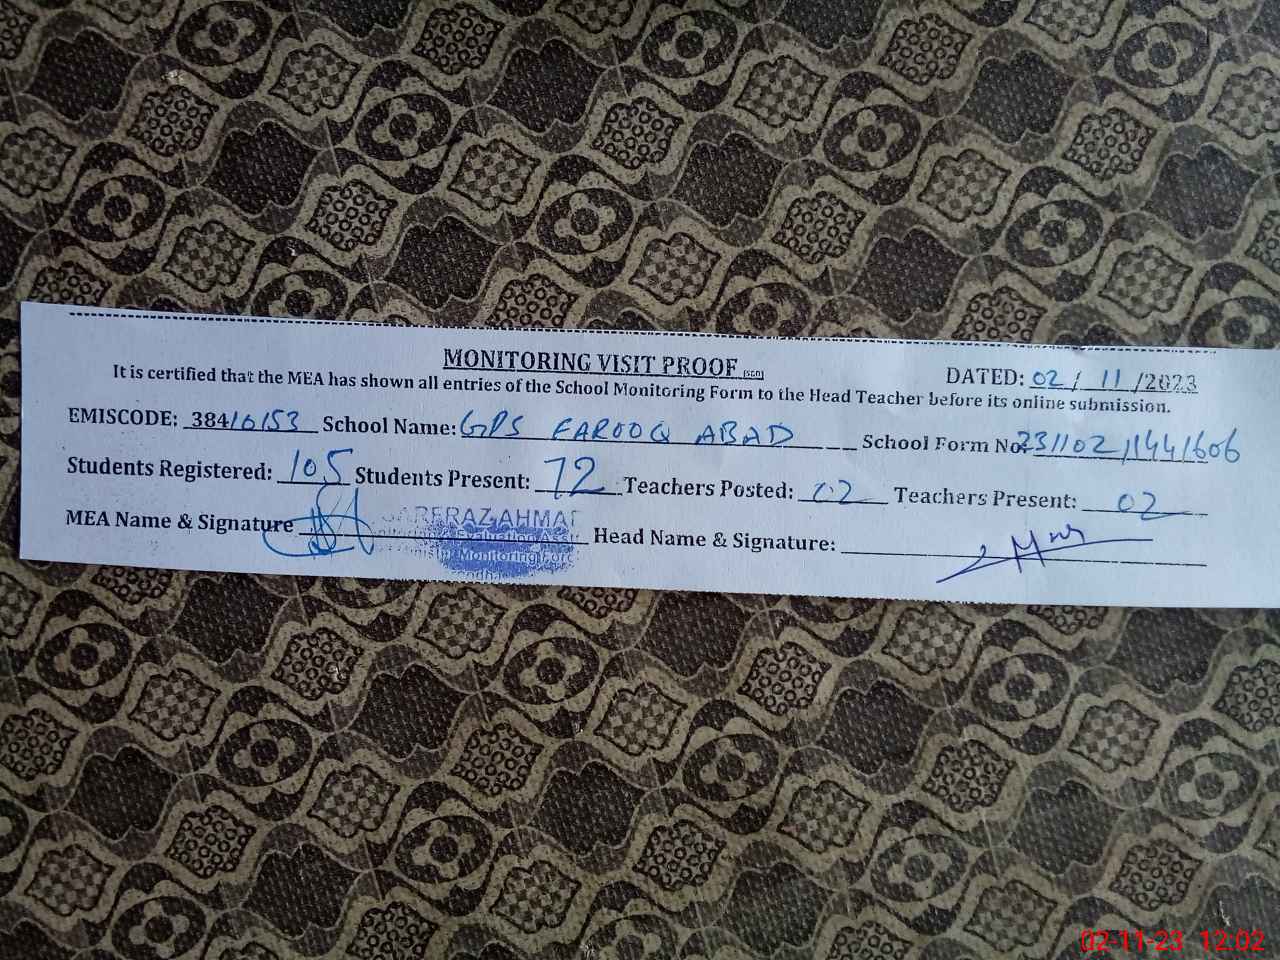 MONITORING VISIT PROOF (SGD)
DATED: 02/11/2023
It is certified that the MEA has shown all entries of the School Monitoring Form to the Head Teacher before its online submission.
EMISCODE: 38416153 School Name: GPS FAROOQ ABAD School Form No:
Students Registered: 105 Students Present: 72 Teachers Posted: 02 Teachers Present: 02
MEA Name & Signature SARFRAZ AHMAD Head Name & Signature:
Monitoring Force
02-11-23 12:02